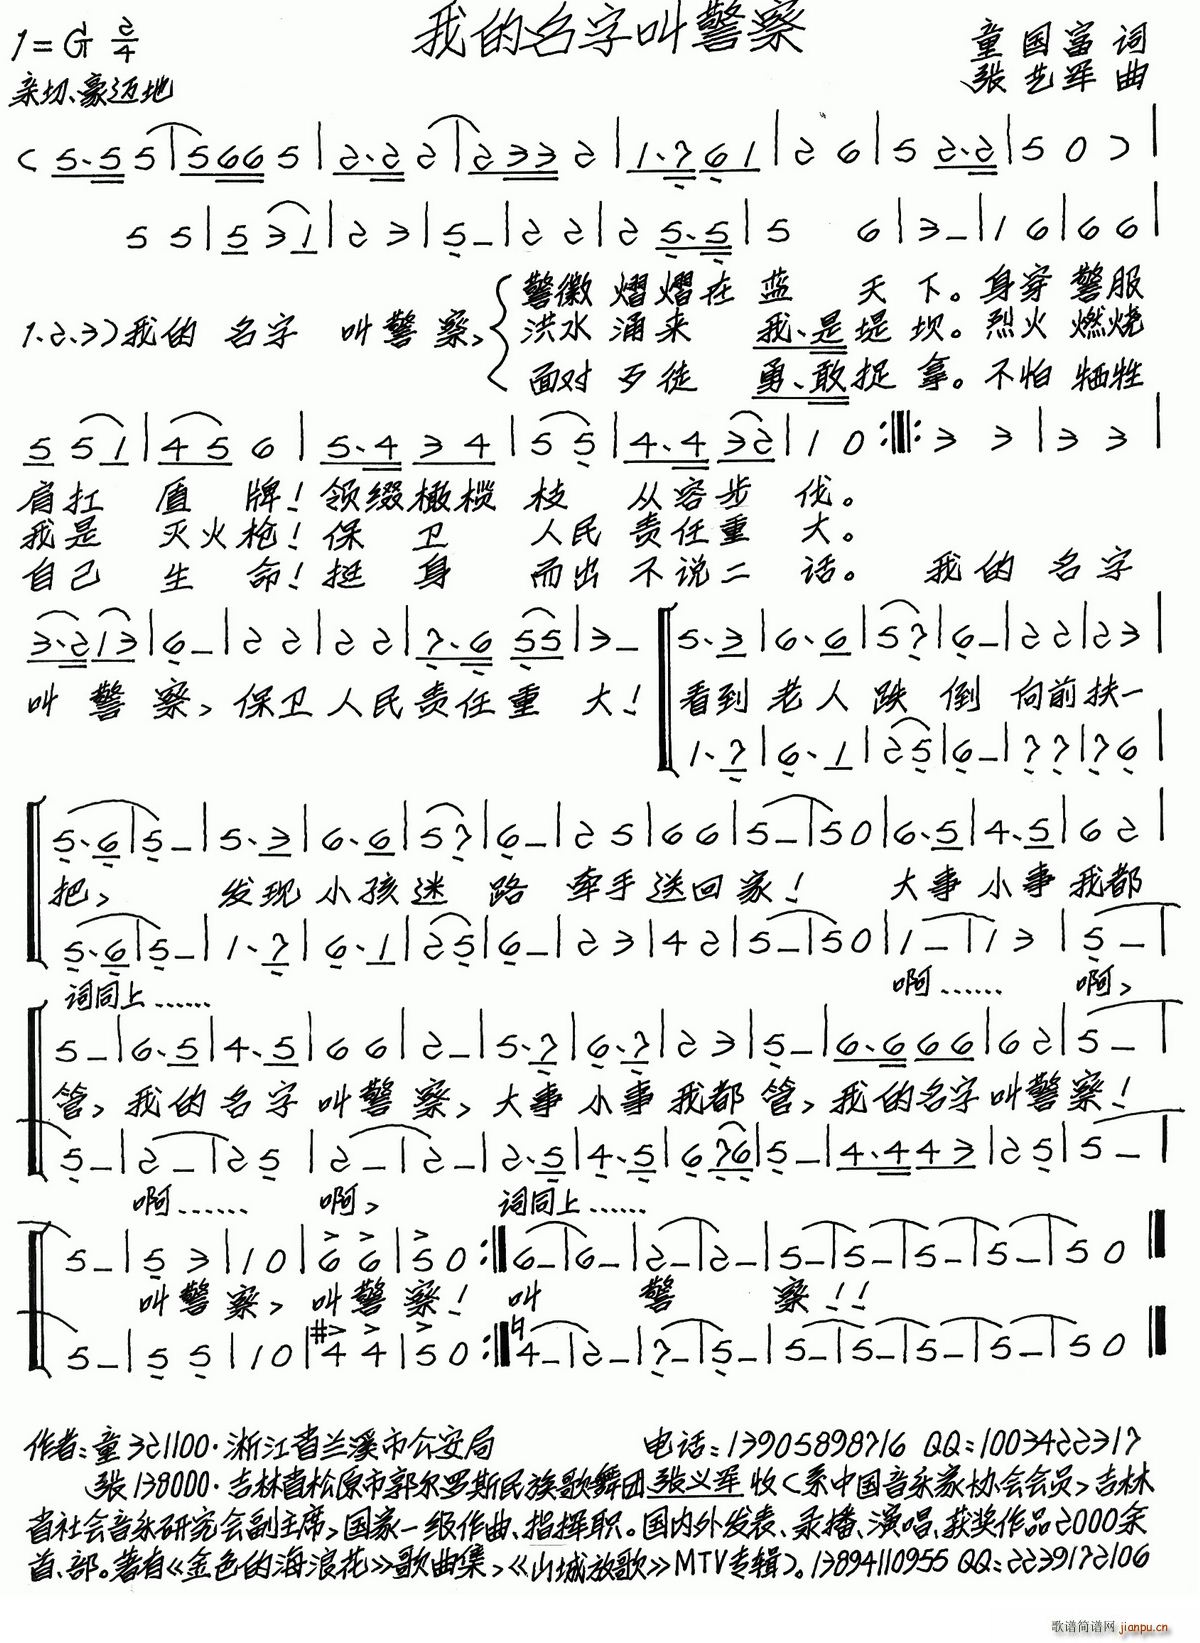 我的名字叫警察
1=G 2/4
童国富 词
亲切、豪迈地
张艺军 曲
( 5·5 5 | 5 6 6 5 | 2·2 2 | 2 3 3 2 | 1·7 6 1 | 2 6 | 5 2·2 | 5 0 ) |
5 5 | 5 3 1 | 2 3 | 5 – | 2 2 | 2 5·5 | 5 6 | 3 – | 1 6 | 6 6 |
警徽 熠熠在 蓝 天 下。身穿 警服
1.2.3)我的 名字 叫警察、 洪水 涌来 我、是堤 坝。烈火 燃烧
面对 歹徒 勇、敢捉 拿。不怕 牺牲
5 5 1 | 4 5 6 | 5·4 3 4 | 5 5 | 4·4 3 2 | 1 0 :||: 3 3 | 3 3 |
肩扛 盾 牌！领缀橄榄 枝 从容步 伐。
我是 灭火枪！保 卫 人民 责任重 大。
自己 生 命！挺 身 而出 不说二 话。 我的 名字
3·2 1 3 | 6 – | 2 2 | 2 2 | 7·6 5 5 | 3 – 5·3 | 6·6 | 5 7 | 6 – | 2 2 | 2 3 |
叫 警 察、保卫 人民责任重 大！ 看到 老人 跌 倒 向前 扶一
1·7 | 6·1 | 2 5 | 6 – | 7 7 | 7 6 |
5·6 | 5 – | 5·3 | 6·6 | 5 7 | 6 – | 2 5 | 6 6 | 5 – | 5 0 | 6·5 | 4·5 | 6 2 |
把、 发现 小孩迷 路 牵手送回家！ 大事 小事 我都
5·6 | 5 – | 1·7 | 6·1 | 2 5 | 6 – | 2 3 | 4 2 | 5 – | 5 0 | 1 – | 1 3 | 5 – |
词同上…… 啊…… 啊、
5 – | 6·5 | 4·5 | 6 6 | 2 – | 5·7 | 6·7 | 2 3 | 5 – | 6·6 6 6 6 | 6 2 | 5 – |
管、我的 名字 叫警 察、大事 小事 我都 管、我的名字叫警察！
5 – | 2 – | 2 5 | 2 – | 2 – | 2·5 | 4·5 | 6 7 6 | 5 – | 4·4 4 3 | 2 5 | 5 – |
啊…… 啊、 词同上……
5 – | 5 3 | 1 0 | 6 6 | 5 0 :|| 6 – | 6 – | 2 – | 2 – | 5 – | 5 – | 5 – | 5 – | 5 0 ||
叫警 察、叫警 察！ 叫 警 察！！
5 – | 5 5 | 1 0 | #4 4 | 5 0 :|| ♮4 – | 2 – | 7 – | 5 – | 5 – | 5 – | 5 – | 5 – | 5 0 ||
作者：童 321100·浙江省兰溪市公安局 电话：13905898716 QQ：1003422317
张 138000·吉林省松原市郭尔罗斯民族歌舞团张义军 收（系中国音乐家协会会员、吉林
省社会音乐研究会副主席、国家一级作曲、指挥职。国内外发表、录播、演唱、获奖作品2000余
首、部。著有《金色的海浪花》歌曲集、《山城放歌》MTV专辑）。13894110955 QQ：2239172106
歌谱简谱网 jianpu.cn